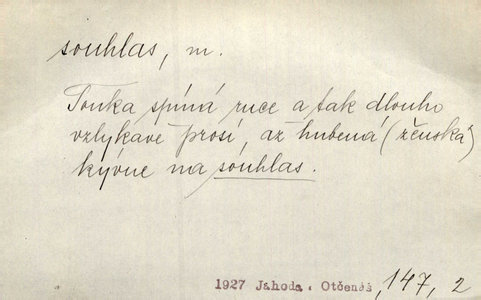 souhlas, m.
Tonka spíná ruce a tak dlouho
vzlykavě prosí, až hubená (ženská)
kývne na souhlas.
1927 Jahoda, Otčenáš, 147, 2